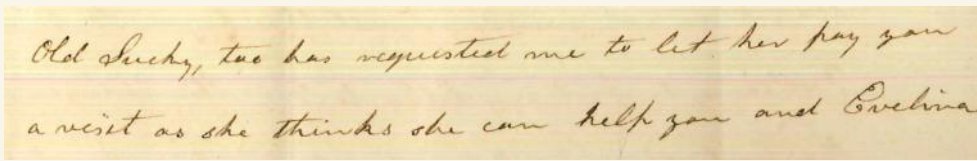 Old Sucky, too has requested me to let her pay you
a visit as she thinks she can help you and Evelina